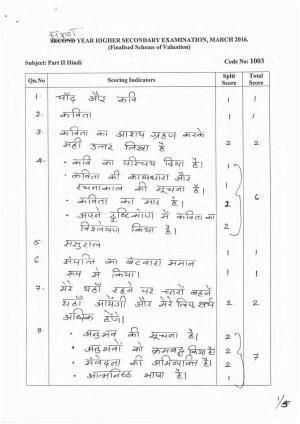 FIRST
SECOND YEAR HIGHER SECONDARY EXAMINATION, MARCH 2016.
(Finalised Scheme of Valuation)
Subject: Part II Hindi Code No: 1003
Qu.No Scoring Indicators Split Score Total Score
1. चाँद और कवि 1 1
2. कविता 1 1
3. कविता का आशय ग्रहण करके
सही उत्तर लिखा है 2 2
4. • कवि का परिचय दिया है। 1
• कविता की काव्यधारा और
रचनाकाल की सूचना है। 1
• कविता का सार है। 2 6
• अपने दृष्टिकोण में कविता का
विश्लेषण किया है। 2
5. ससुराल 1 1
6. संपत्ति का बँटवारा समान
रूप से किया। 1 1
7. मेरे यहाँ रहने पर चारों बहनें
यहाँ आयेंगी और मेरे लिए खर्च 2 2
अधिक होंगे।
8. • अनुभव की सूचना है। 2
• अनुभवों को क्रमबद्ध किया है। 2
• संवेदना की अभिव्यक्ति है। 2 7
• आत्मनिष्ठ भाषा है। 1
1/5